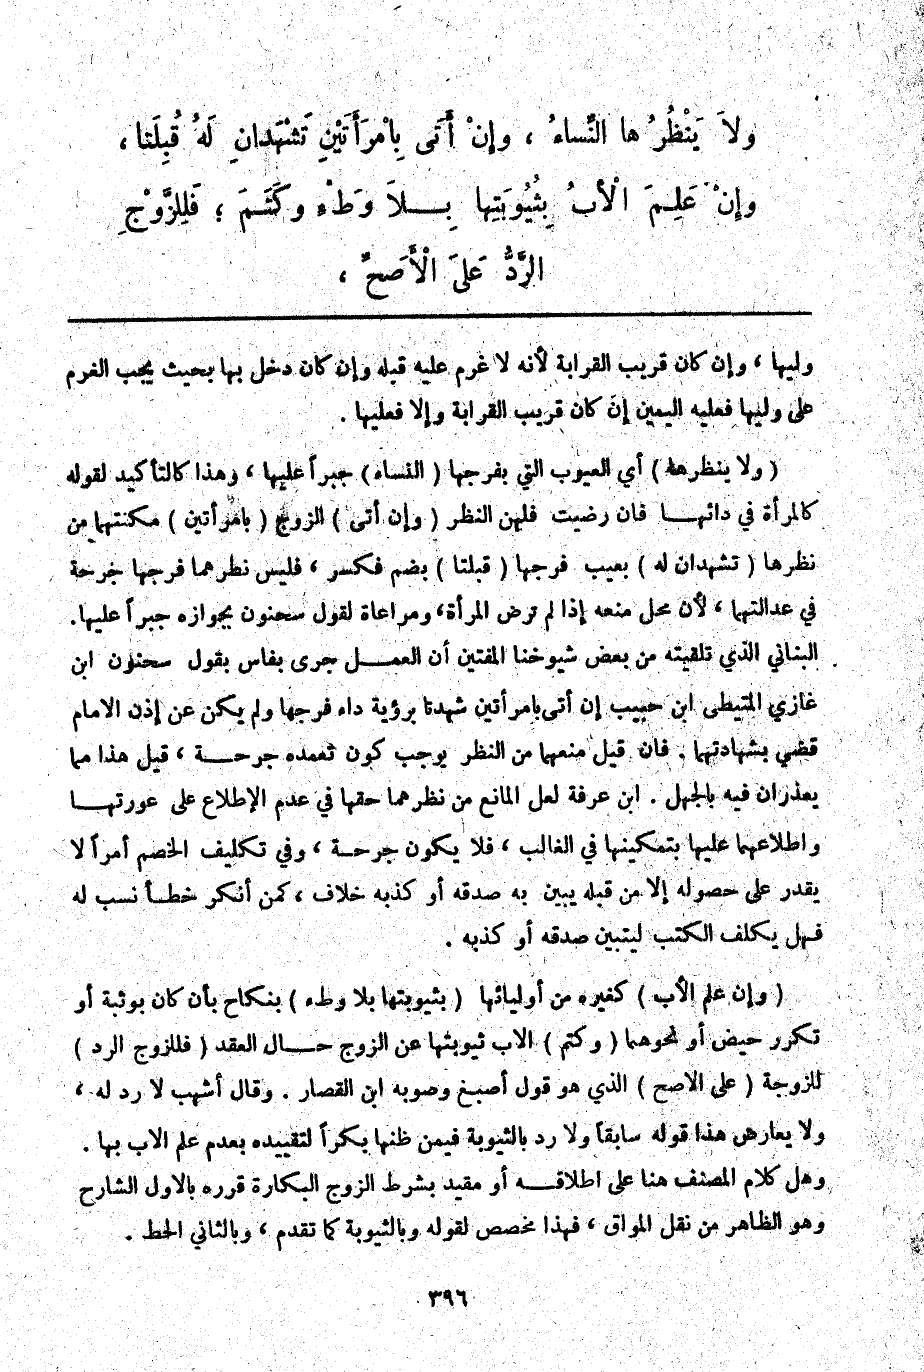 ولاَ يَنْظُرُها النِّساءُ ، وإنْ أَتَى بِامْرَأَتَيْنِ تَشْهَدانِ لَهُ قُبِلَتا ،
وإنْ عَلِمَ الْأبُ بِثُيُوبَتِها بِلاَ وَطْءٍ وكَتَمَ ؛ فَلِلزَّوْجِ
الرَّدُّ عَلىَ الْأَصحِّ ،
وليها ، وإن كان قريب القرابة لأنه لا غرم عليه قبله وإن كان دخل بها بحيث يجب الغرم
على وليها فعليه اليمين إن كان قريب القرابة وإلا فعليها .
( ولا ينظرها ) أي العيوب التي بفرجها ( النساء ) جبراً عليها ، وهذا كالتأكيد لقوله
كالمرأة في دائها فان رضيت فلهن النظر ( وإن أتى ) الزوج ( بامرأتين ) مكنتهما من
نظرها ( تشهدان له ) بعيب فرجها ( قبلتا ) بضم فكسر ، فليس نظرهما فرجها جرحة
في عدالتهما ، لأن محل منعه إذا لم ترض المرأة، ومراعاة لقول سحنون بجوازه جبراً عليها.
البناني الذي تلقيته من بعض شيوخنا المفتين أن العمل جرى بفاس بقول سحنون ابن
غازي المتيطى ابن حبيب إن أتى بامرأتين شهدتا برؤية داء فرجها ولم يكن عن إذن الامام
قضي بشهادتهما . فان قيل منعهما من النظر يوجب كون تعمده جرحة ، قيل هذا مما
يعذران فيه بالجهل . ابن عرفة لعل المانع من نظرهما حقها في عدم الإطلاع على عورتها
واطلاعهما عليها بتمكينها في الغالب ، فلا يكون جرحة ، وفي تكليف الخصم أمراً لا
يقدر على حصوله إلا من قبله يبين به صدقه أو كذبه خلاف ، كمن أنكر خطأ نسب له
فهل يكلف الكتب ليتبين صدقه أو كذبه .
( وإن علم الأب ) كغيره من أوليائها ( بثيوبتها بلا وطء ) بنكاح بأن كان بوثبة أو
تكرر حيض أو نحوهما ( وكتم ) الاب ثيوبتها عن الزوج حال العقد ( فللزوج الرد )
للزوجة ( على الاصح ) الذي هو قول أصبغ وصوبه ابن القصار . وقال أشهب لا رد له ،
ولا يعارض هذا قوله سابقاً ولا رد بالثيوبة فيمن ظنها بكراً لتقييده بعدم علم الاب بها .
وهل كلام المصنف هنا على اطلاقه أو مقيد بشرط الزوج البكارة قرره بالاول الشارح
وهو الظاهر من نقل المواق ، فهذا مخصص لقوله وبالثيوبة كما تقدم ، وبالثاني الحط .
٣٩٦